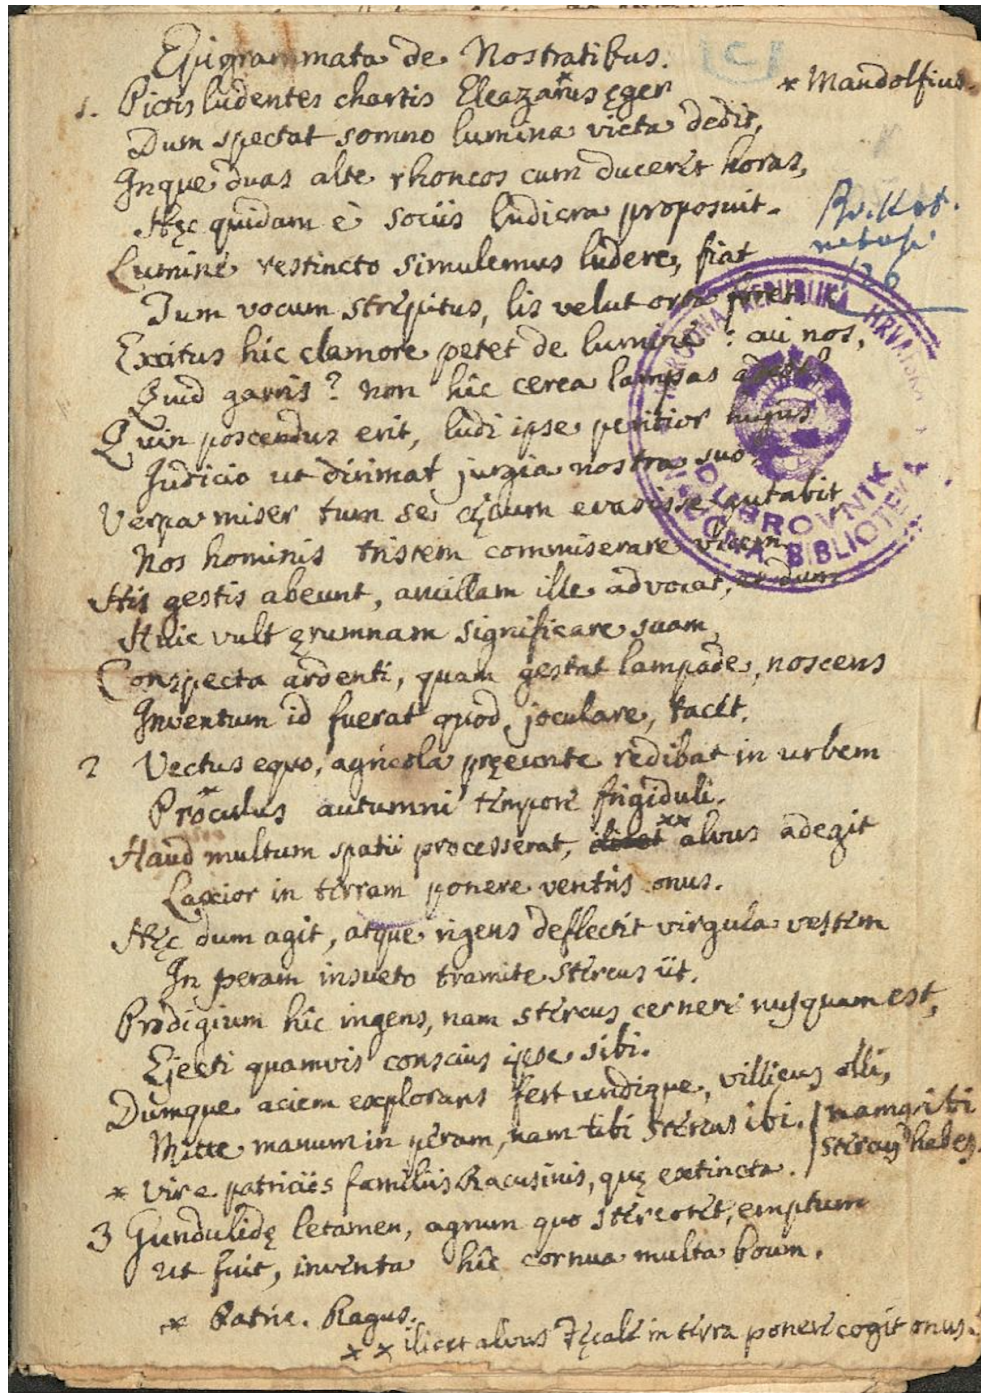 Epigrammata de Nostratibus.
C
* Mandolfius.
1. Pictis ludentes chartis Eleazarus* ęger
Dum spectat somno lumina victa dedit,
Inque duas alte rhoncos cum duceret horas,
Hęc quidam è sociis ludicra proposuit.
Lumine restincto simulemus ludere, fiat
Tum vocum strepitus, lis velut orta foret.
Excitus hic clamore petet de lumine: cui nos,
Quid garris? non hic cerea lampas adest?
Quin poscendus erit, ludi ipse peritior hujus
Iudicio ut dirimat jurgia nostra suo.
Verpa miser tum se cęcum evasisse putabit
Nos hominis tristem commiserare vicem.
His gestis abeunt, ancillam ille advocat, et dum
Huic vult ęrumnam significare suam,
Conspecta ardenti, quam gestat lampade, noscens
Inventum id fuerat quod joculare, tacet.
2 Vectus equo, agricola pręeunte redibat in urbem
Proculus* autumni tempore frigiduli.
Haud multum spatii processerat, ** alvus adegit
Laxior in terram ponere ventris onus.
Hęc dum agit, atque rigens deflectit virgula vestem
In peram insueto tramite stercus iit.
Prodigium hic ingens, nam stercus cernere nusquam est,
Ejecti quamvis conscius ipse sibi.
Dumque aciem explorans fert undique, villicus olli,
Mitte manum in peram, nam tibi stercus ibi. / namq; ibi
stercus habes.
* Vir e patriciis familiis Racusinis, quę extincta.
3 Gundulidę letamen, agrum quo stercoret, emptum
Ut fuit, inventa hîc cornua multa boum.
* Patric. Ragus.
** ilicet alvus Fęcale in terra ponere cogit onus.
NARODNA REPUBLIKA HRVATSKA
DUBROVNIK
NAUČNA BIBLIOTEKA